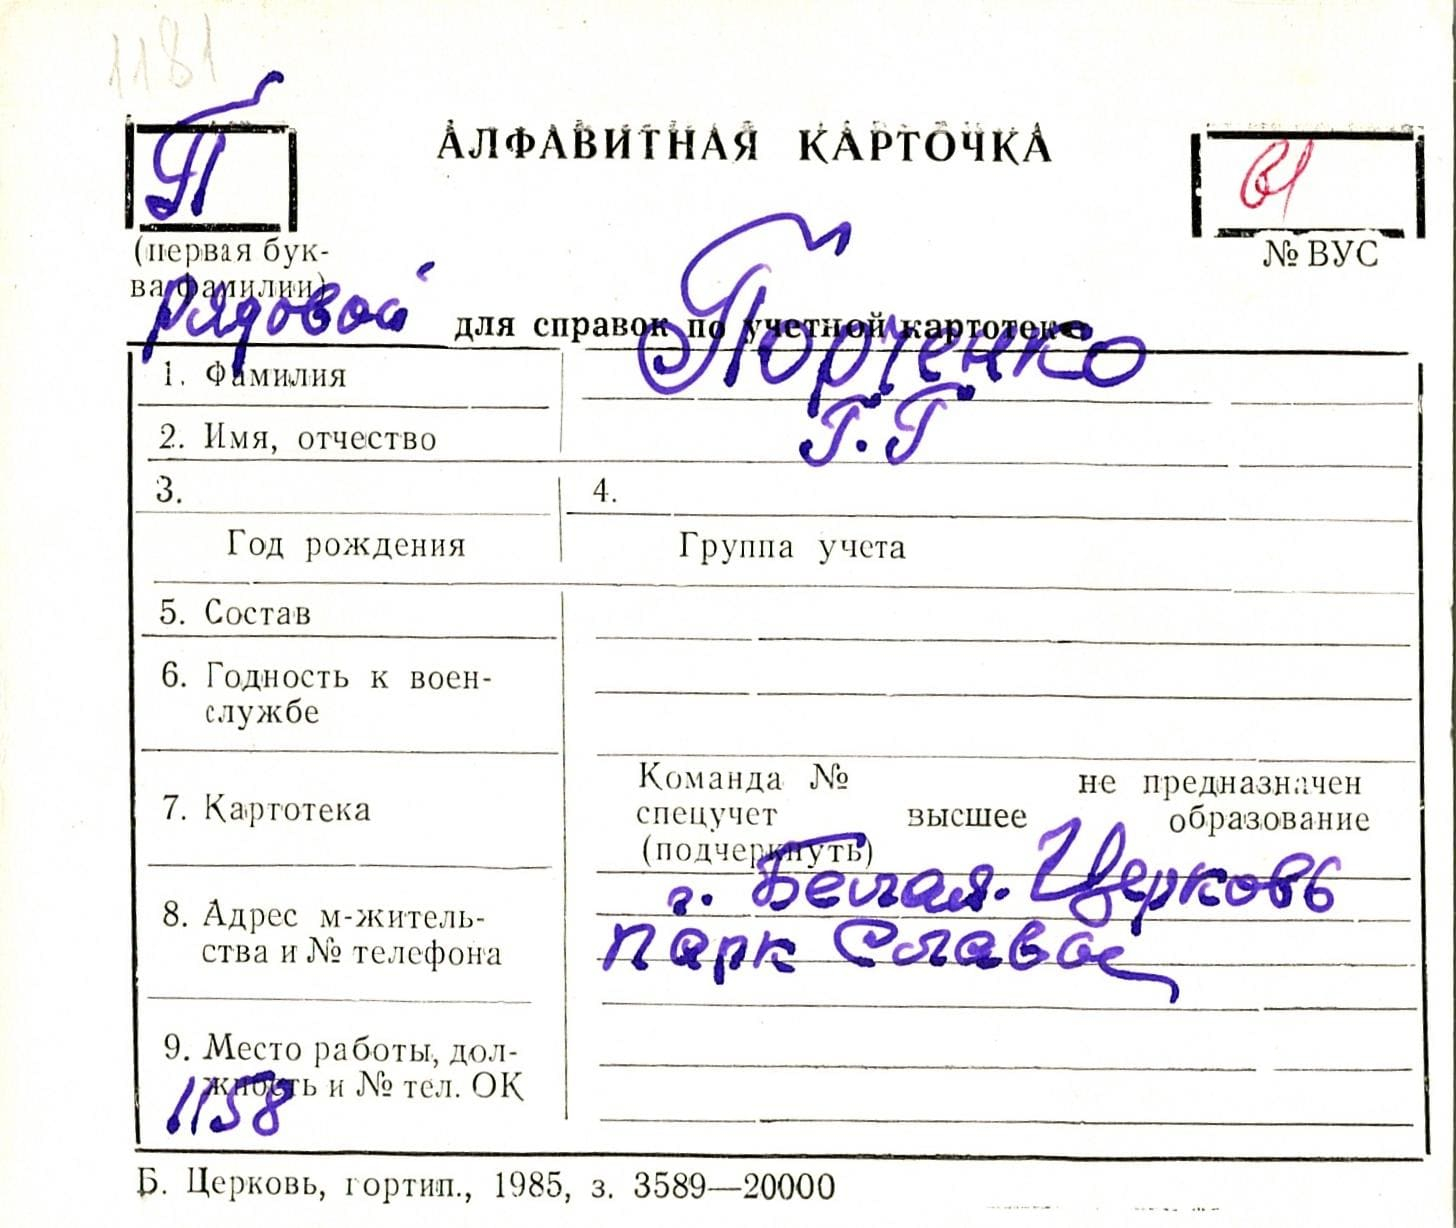 1181
П
АЛФАВИТНАЯ КАРТОЧКА
(первая бук-
ва фамилии)
№ ВУС
рядовой
для справок по учетной картотеке
1. Фамилия
Порченко
2. Имя, отчество
Г. Г
3.
4.
Год рождения
Группа учета
5. Состав
6. Годность к воен-
службе
7. Картотека
Команда № не предназначен
спецучет высшее образование
(подчеркнуть)
8. Адрес м-житель-
ства и № телефона
г. Белая Церковь
парк Славы
9. Место работы, дол-
жность и № тел. ОК
1158
Б. Церковь, гортип., 1985, з. 3589—20000